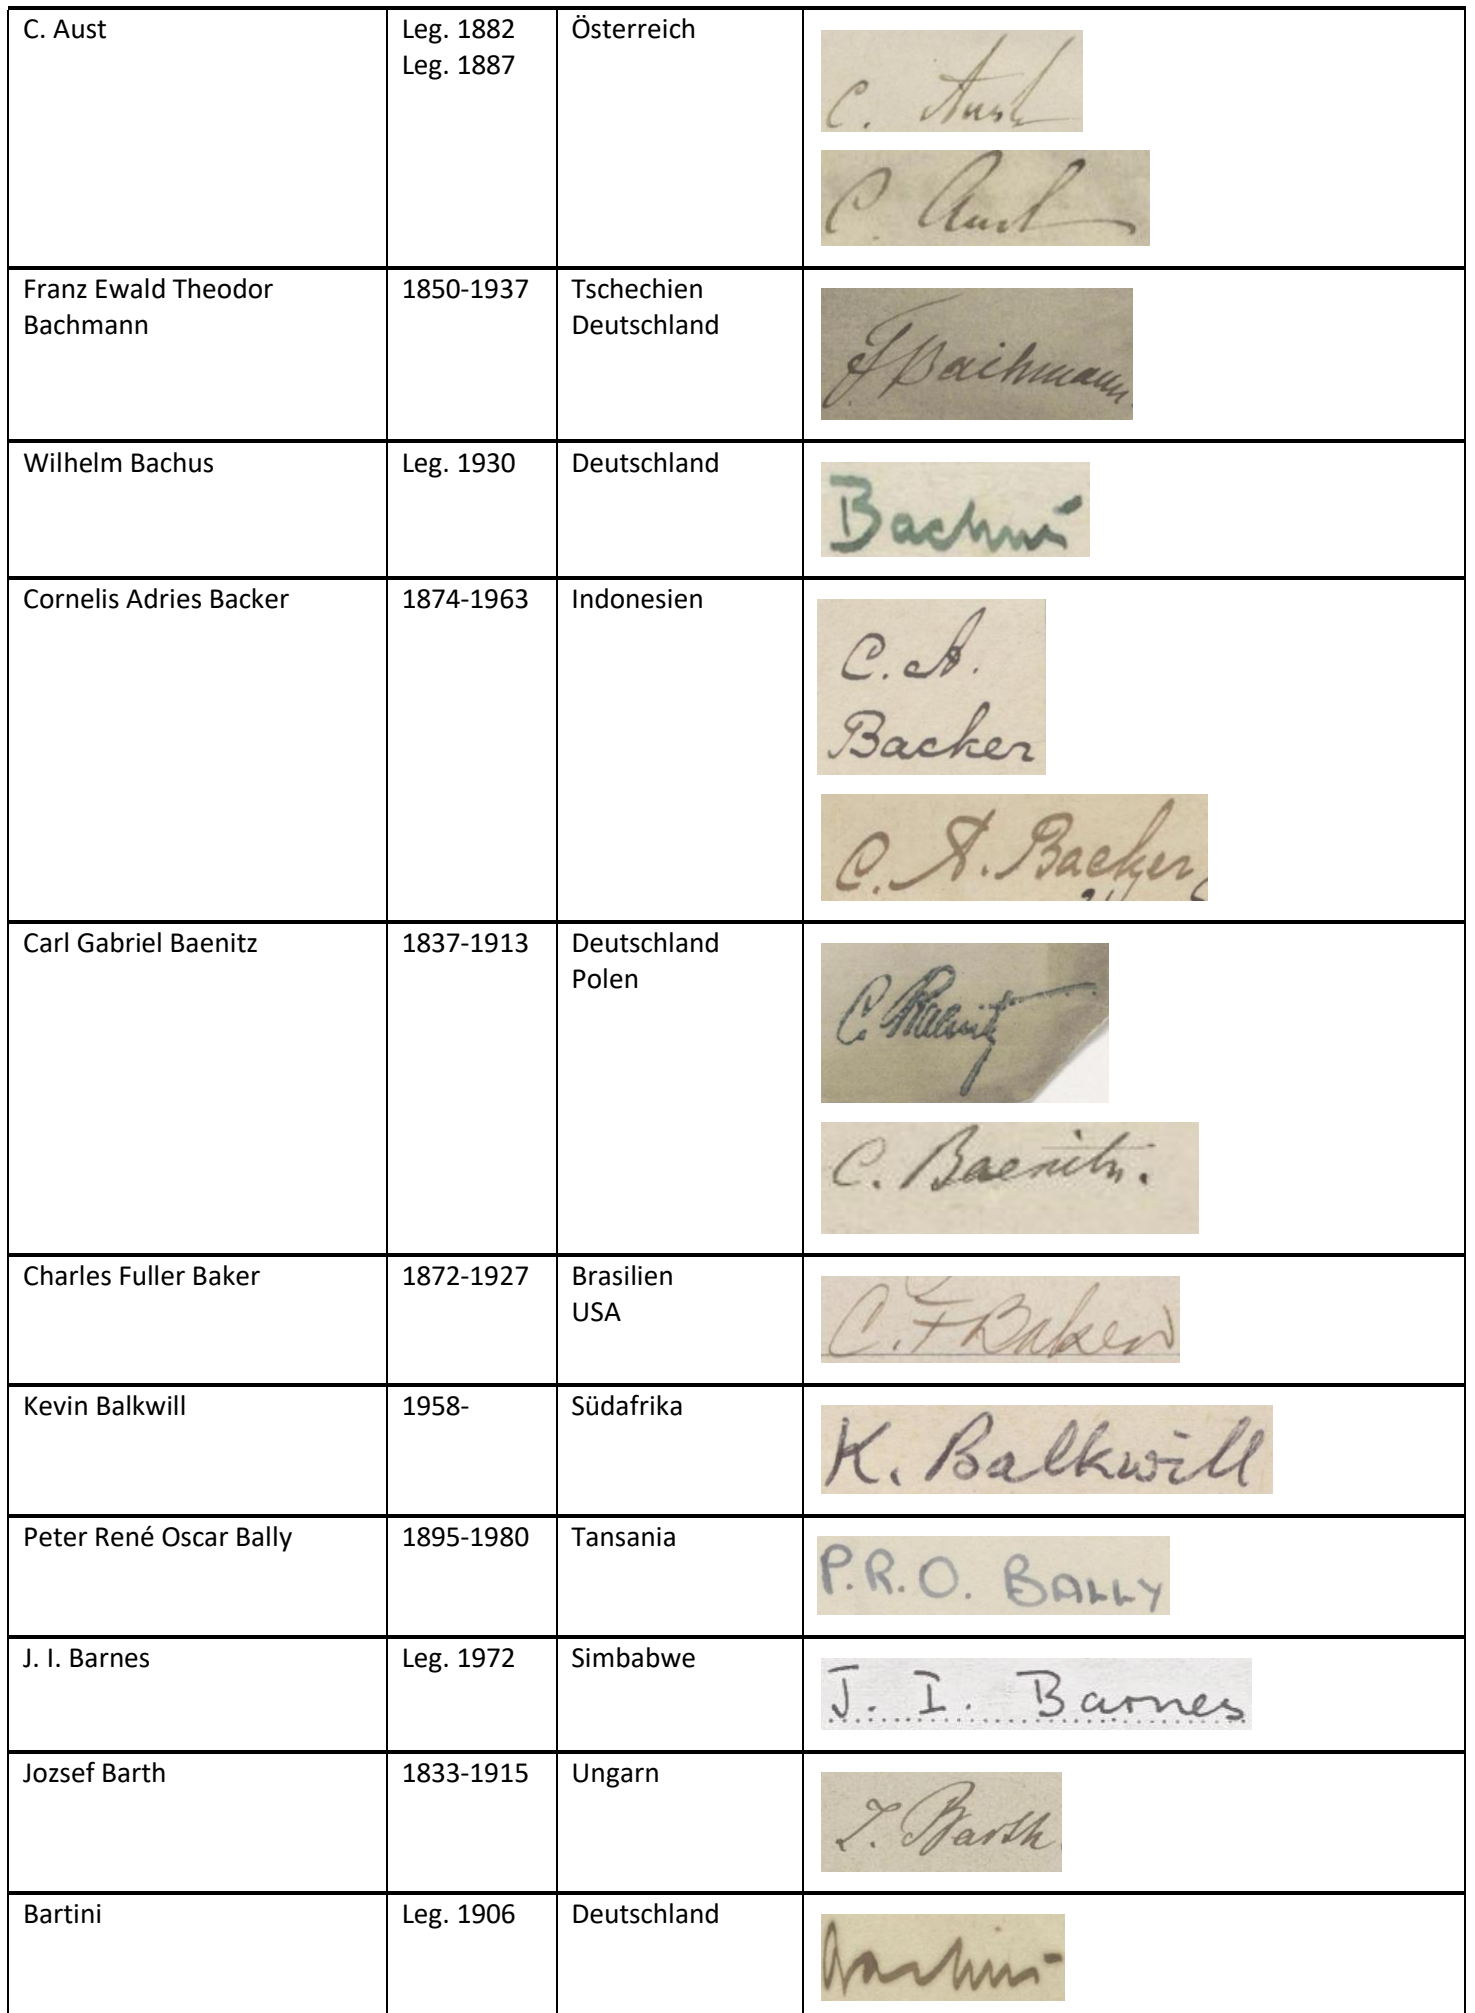 C. Aust Leg. 1882 Österreich
Leg. 1887
C. Aust
C. Aust
Franz Ewald Theodor 1850-1937 Tschechien
Bachmann Deutschland
F Bachmann.
Wilhelm Bachus Leg. 1930 Deutschland
Bachus
Cornelis Adries Backer 1874-1963 Indonesien
C. A.
Backer
C. A. Backer
Carl Gabriel Baenitz 1837-1913 Deutschland
Polen
C. Baenitz
C. Baenitz.
Charles Fuller Baker 1872-1927 Brasilien
USA
C. F Baker
Kevin Balkwill 1958- Südafrika
K. Balkwill
Peter René Oscar Bally 1895-1980 Tansania
P.R.O. BALLY
J. I. Barnes Leg. 1972 Simbabwe
J. I. Barnes
Jozsef Barth 1833-1915 Ungarn
J. Barth.
Bartini Leg. 1906 Deutschland